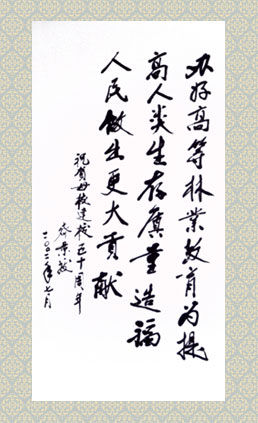 办好高等林业教育为提
高人类生存质量造福
人民做出更大贡献
祝贺母校建校五十周年
二〇〇二年七月